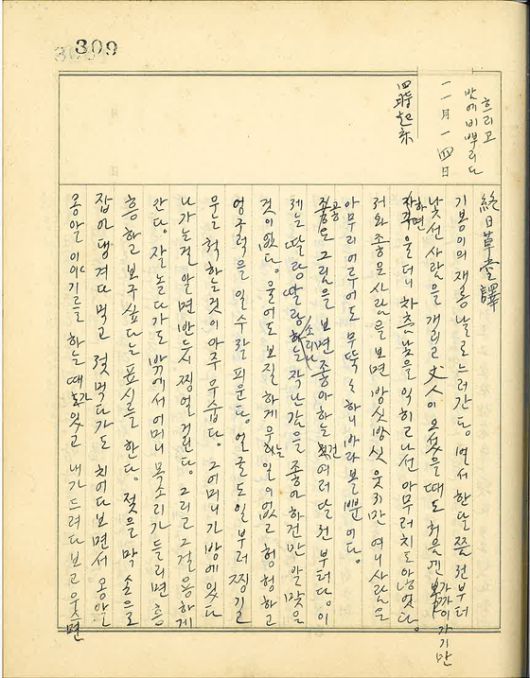 309
흐리고
밧에 비 뿌리다
一一月一四日
四時起床
終日草臺譯
기봉이의 재롱 날로 느러간다. 벌서 한달쯤 전부터
낯선 사람을 개리고 丈人이 오셨을때도 처음엔 가까이 가기만
하면 자꾸 울더니 차츰 낯을 익히고나선 아무러치도 않엇다.
사람을 보면 방싯방싯 웃지만 여니 사람은
아무리 어루어도 무뚝뚝하니 바라볼뿐이다.
그림을 보면 좋아하는 건 여러달 전부터다. 이
제는 딸랑딸랑 소리나는 작난감을 좋아하건만 알맞은
것이 없다. 울어도 보질하게 우는 일이 없고 헝헝하고
엉구럭을 일수 잘 피운다. 얼굴도 일부러 찡기고
우는 척하는것이 아주 우숩다. 그 어머니가 방에 있다
나가는걸 알면 반듯이 찡얼거린다. 그리고 그걸 용하게
안다. 잘 놀다가도 밖에서 어머니 목소리가 들리면 흔
흥하고 보구싶다는 표시를 한다. 젖을 막 손으로
잡어댕겨다 먹고 젖먹다가도 치어다보면서 옹알
옹알 이야기를 하는때가 있고 내가 드려다보고 우스면